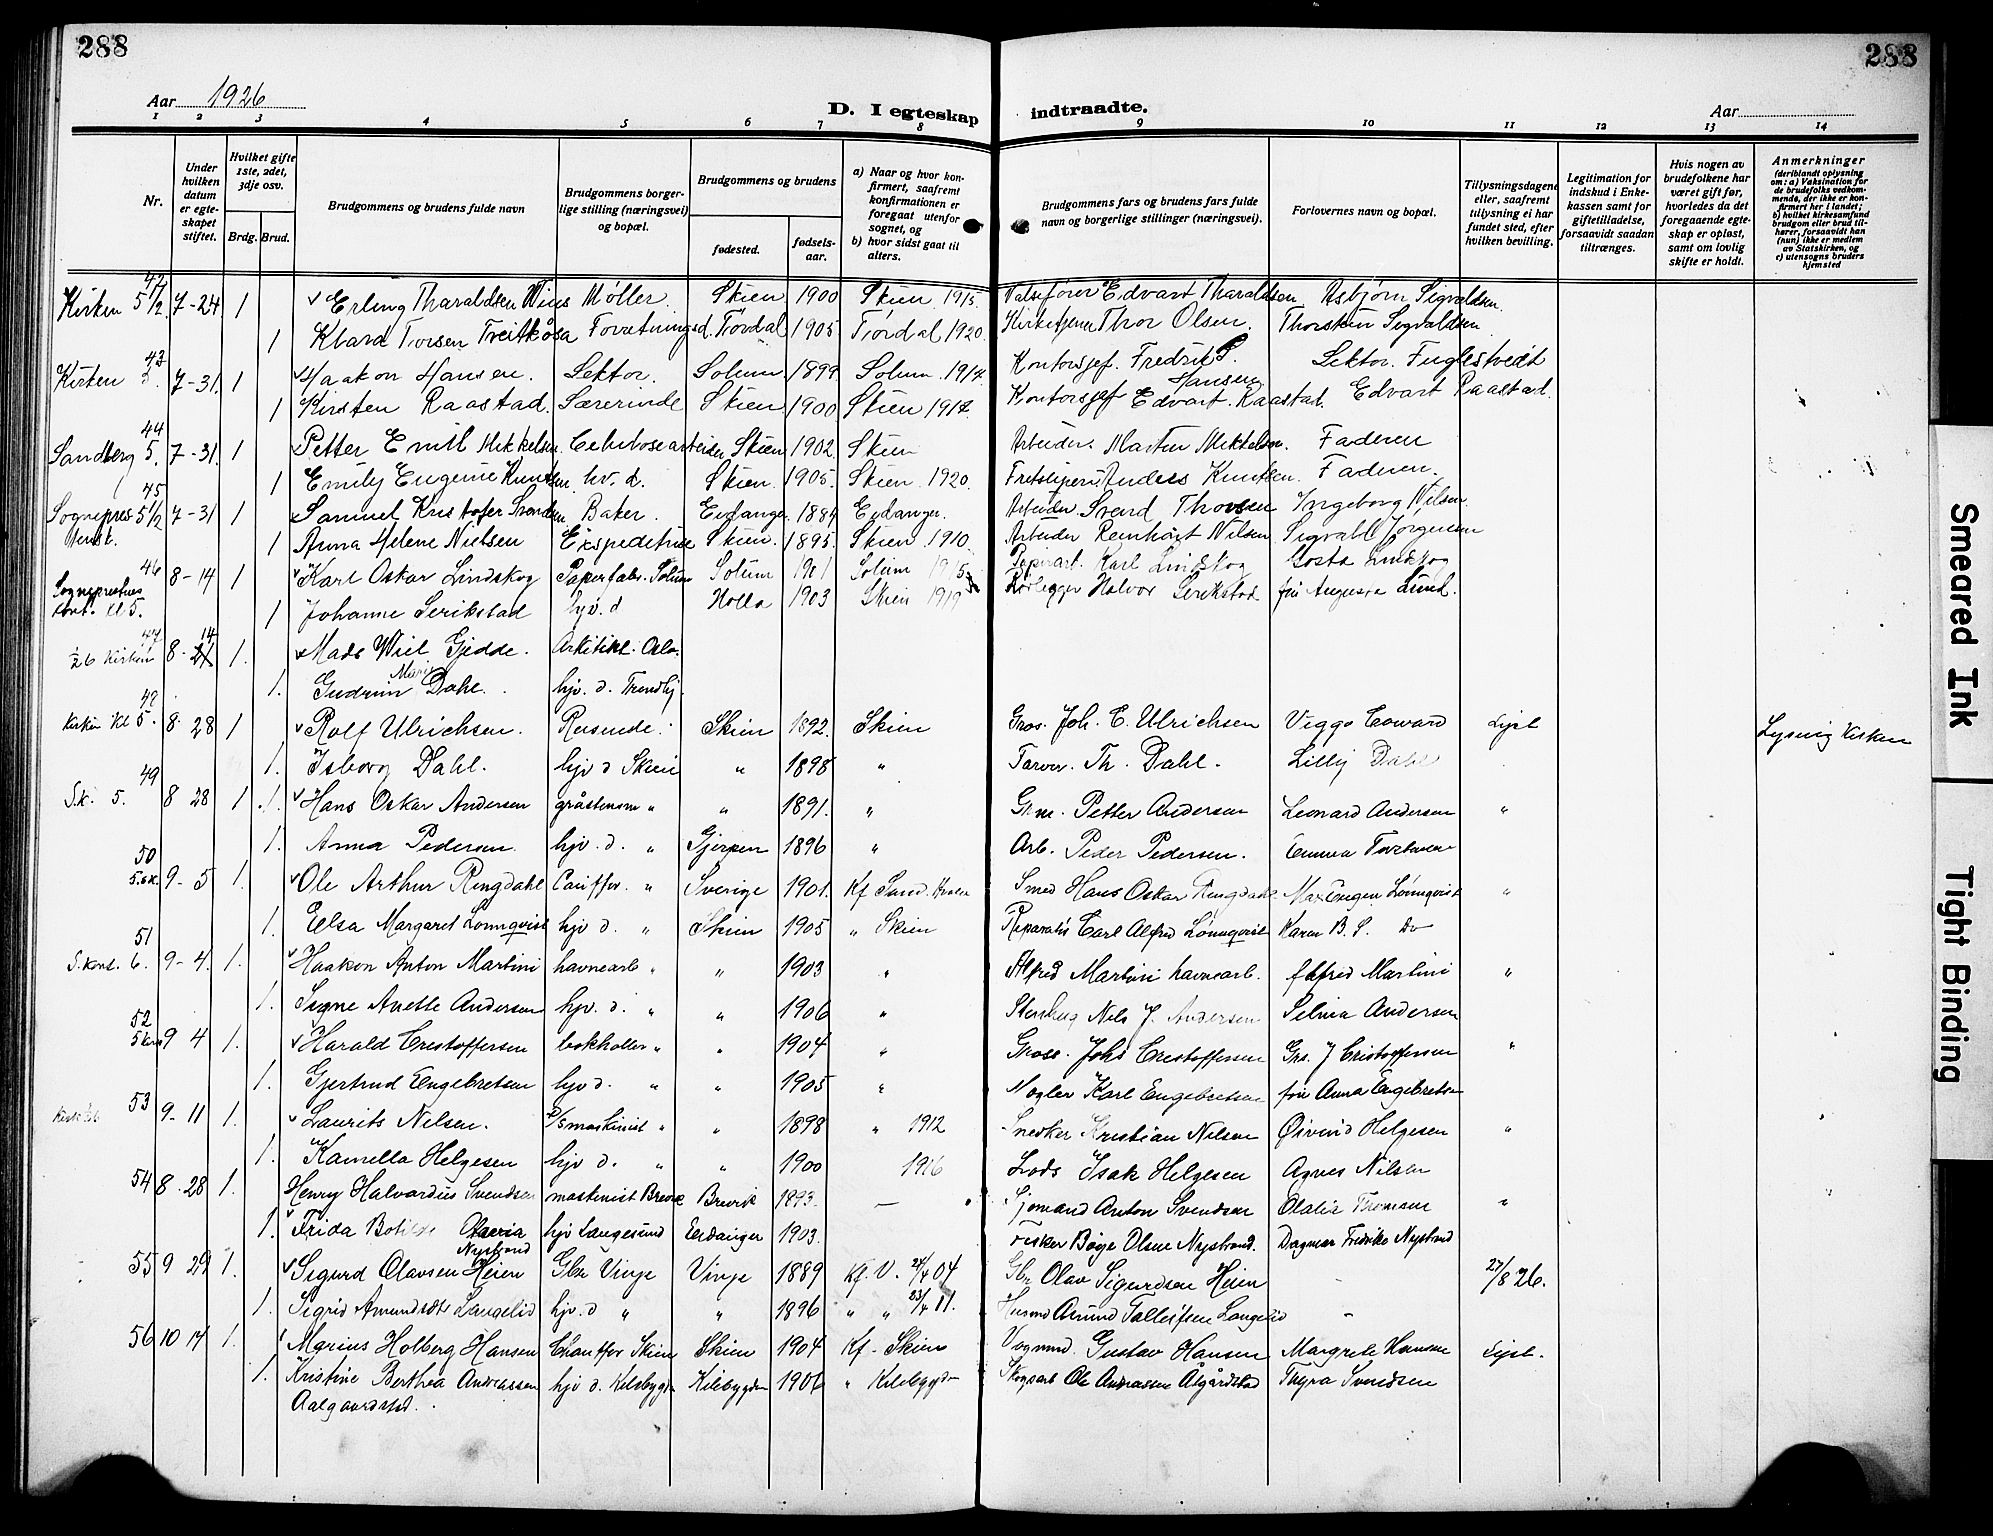 288
288
Aar 1926
D. I egteskap indtraadte.
Aar
1 2 3 4 5 6 7 8 9 10 11 12 13 14
Nr.
Under hvilken datum er egteskapet stiftet.
Hvilket gifte 1ste, 2det, 3dje osv.
Brdg. Brud.
Brudgommens og brudens fulde navn
Brudgommens borgerlige stilling (næringsvei) og bopæl.
Brudgommens og brudens
fødested.
fødselsaar.
a) Naar og hvor konfirmert, saafremt konfirmationen er foregaat utenfor sognet, og
b) hvor sidst gaat til alters.
Brudgommens fars og brudens fars fulde navn og borgerlige stillinger (næringsvei).
Forlovernes navn og bopæl.
Tillysningsdagene eller, saafremt tillysning ei har fundet sted, efter hvilken bevilling.
Legitimation for indskud i Enkekassen samt for giftetilladelse, forsaavidt saadan tiltrænges.
Hvis nogen av brudefolkene har været gift før, hvorledes da det foregaaende egteskap er opløst, samt om lovlig skifte er holdt.
Anmerkninger
(deriblandt oplysning om: a) Vaksination for de brudefolks vedkommende, der ikke er konfirmert her i landet;
b) hvilket kirkesamfund brudgom eller brud tilhører, forsaavidt han (hun) ikke er medlem av Statskirken, og
c) utensogns bruders hjemsted
Kirken 5 1/2 7-24 1 Erling Tharaldsen Møller. Skien 1900 Skien 1915. Edvart Tharaldsen Asbjørn Sigvaldsen.
1 Klara Torsen Tørdal 1905 Tørdal 1920. Thor Olsen. Thorstein Sigvaldsen
Kirken 43 7-31. 1 Haakon Hansen. Lektor. Solum. 1899 Solum. 1914. Kontorsjef. Fredrik S. Hansen Lektor. Fuglestvedt
1 Kirsten Raastad. Lærerinde Skien 1900 Skien 1914. Kontorsjef Edvart. Raastad. Edvart Raastad.
44 Sandberg 5. 7-31. 1 Petter Emil Mikkelsen. Skien 1902 Skien Arbeider. Martin Mikkelsen. Faderen
1 Emily Eugenie Knudsen hv. d. Skien. 1905. Skien 1920. Anders Knudsen. Faderen.
45 5 1/2 7-31 1 Samuel Kristofer Baker. Eidanger. 1884 Eidanger. Arbeider Svend Thorsen Ingeborg Nilsen
1 Anna Helene Nielsen Ekspeditrice Skien. 1895. Skien. 1910. Arbeider Reinhart Nilsen Sigvald Jørgensen
46 8-14 1 Karl Oskar Lindskog Solum 1901 Solum Karl Lindskog Gosta Lindskog
kl 5. 1 Johanne Serikstad hjv. d Holla 1903 Skien 1919 Halvor Serikstad frü Augusta Lund.
47 1/26 Kirken 8-14 21 1. Mads Wiel Gjedde. Arkitekt. Oslo.
1. Gudrun Marie Dahl. hjv. d. Trondhj.
Kirken Kl 5. 8. 28 1 Rolf Ulrichsen. Reisende. Skien 1892. Skien Gros. Joh. E. Ulrichsen Viggo Coward Lyst Lysning Kirken
1. Isborg Dahl. hjv d Skien " 1898 " Farver. Th. Dahl. Lilly Dahl
49 S.k. 5. 8 28 1 Hans Oskar Andersen " " 1891. " Petter Andersen Leonard Andersen "
1. Anna Pedersen. hjv. d. " Gjerpen 1896 " Arb. Peder Pedersen.
50 9-5 1. Ole Arthur Ringdahl " Sverige 1901. Kf Smed Hans Oskar Ringdahl Max Eugen Lönnqvist "
1. Elsa Margaret Lönnqvist hjv d. " Skien 1905 " Skien Carl Alfred Lönnqvist Karen B. S. Do
51 S. kont. 6. 9-4. 1. Haakon Anton Martini havnearb " " 1903 " Alfred Martini havnearb. Alfred Martini "
1. Signe Anette Andersen hjv. d. " " 1906 " Nils J. Andersen Selma Andersen
52 9 4 1. Harald Crestoffersen bokholder " " 1904 " Gross. Johs Crestoffersen Grs. J Cristoffersen "
1. Gjertrud Engebretsen hjv d. " " 1905 " Karl Engebretsen frü Anna Engebretsen
53 9-11 1. Laurits Nilsen. maskinist " " 1898 " 1912 Snedker Kristian Nilsen Øivind Helgesen "
1. Kamella Helgesen hjv d. " " 1900 1916 Lods Isak Helgesen Agnes Nilsen
54 8-28 1. Henry Halvardus Svendsen maskinist Brevik Brevik 1893. — Sjømand Anton Svendsen Olalie Thomsen "
1. Frida Olavia Nystrand hjv Langesund Eidanger 1903. Fisker Børge Olsen Nystrand. Dagmar Fredrikke Nystrand
55 9 29 1. Sigurd Olavsen Heien Gbr Vinje Vinje 1889 Kf. V. 04 Gbr Olav Sigurdsen Heien - 27/8 26.
1. Sigrid Amundsdtr Langelid hjv. d " " 1896 " " 23/4 11. -
56 10 14 1. Marius Holberg Hansen Chauffør Skien Skien 1904 Kf. Skien Vognmd. Gustav Hansen Margrete Hansen Lyst.
1. Kristine Berthea Andreassen Aalgaardstad. hjv d. Kilebygdn Kilebygden 1906 " Kilebygdn Skogsarb Ole Andreassen Ålgårdstad Thyra Svendsen
Smeared Ink
Tight Binding